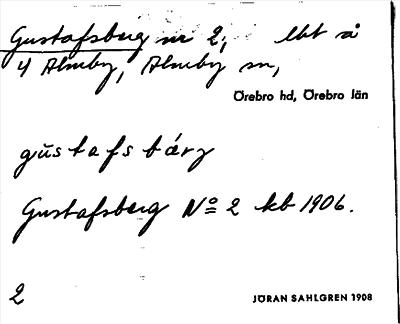 Gustafsberg nr 2, lht å
4 Almby, Almby sn,
Örebro hd, Örebro län
gŭstafs bárj
Gustafsberg No 2 kb 1906.
2
JÖRAN SAHLGREN 1908